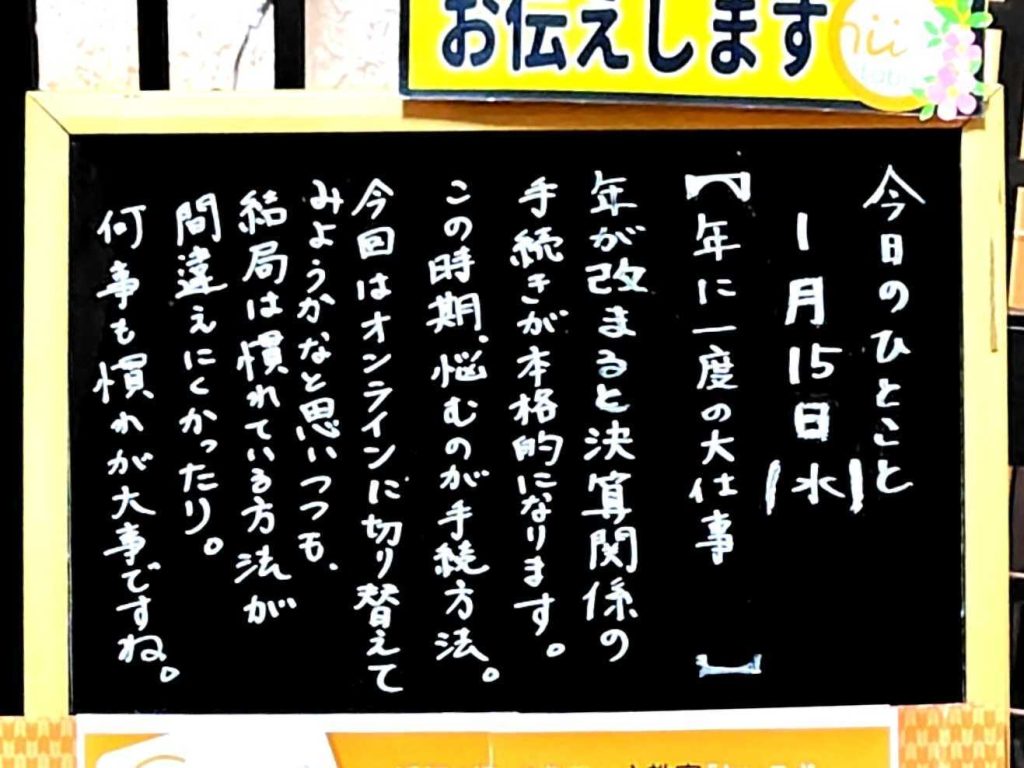 お伝えします
今日のひとこと
1月15日(水)
【年に一度の大仕事】
年が改まると決算関係の
手続きが本格的になります。
この時期、悩むのが手続方法。
今回はオンラインに切り替えて
みようかなと思いつつも、
結局は慣れている方法が
間違えにくかったり。
何事も慣れが大事ですね。